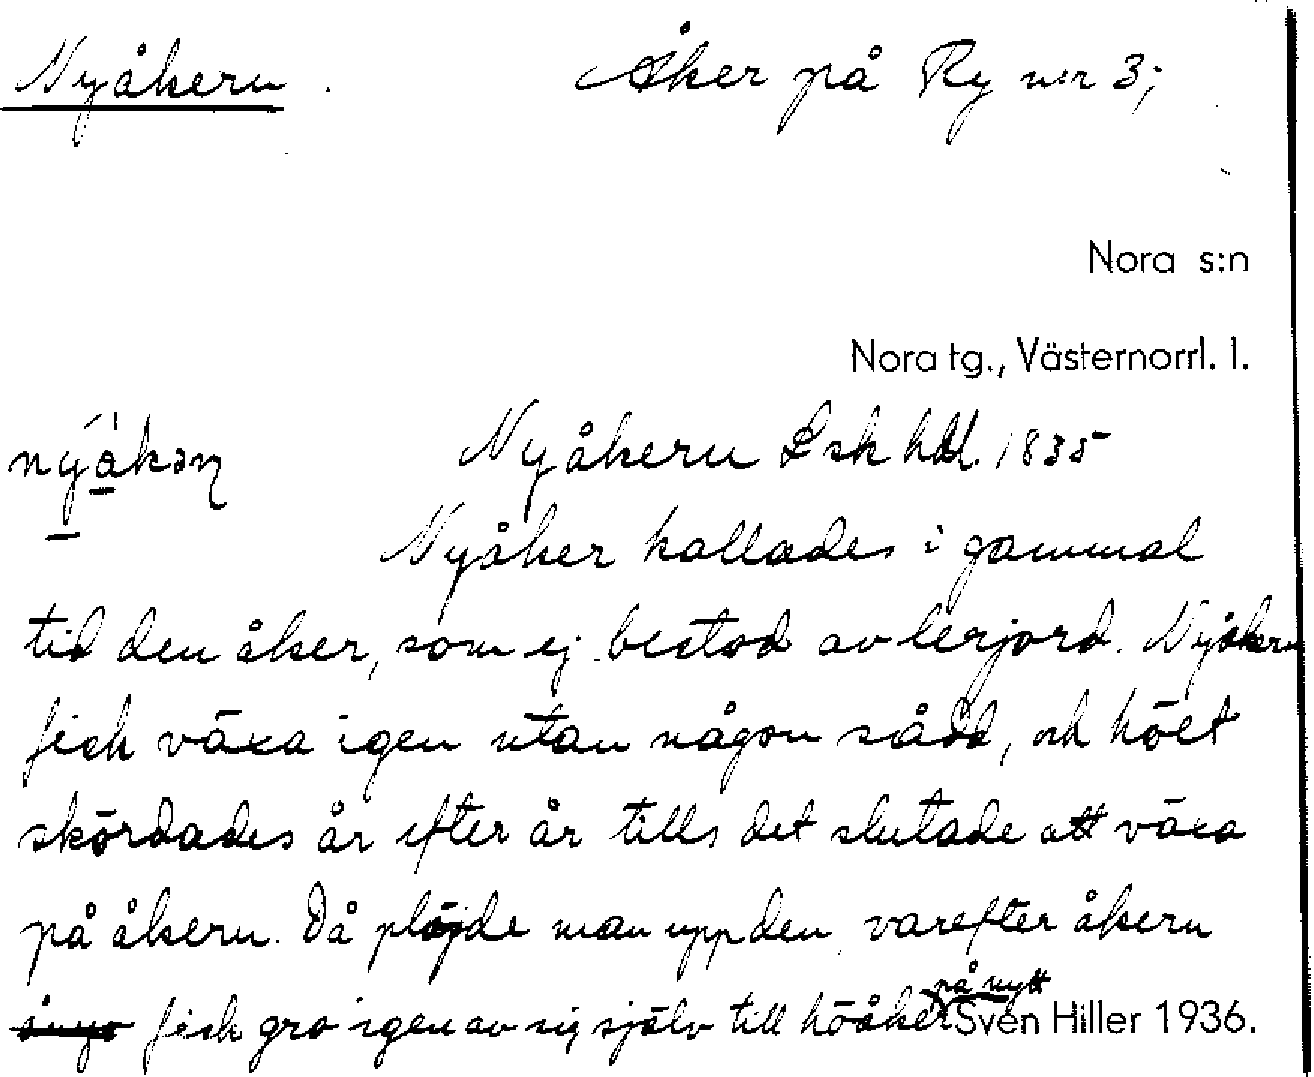 Nyåkern. Åker på Ry nr 3;
Nora s:n
Nora tg., Västernorrl. l.
Nyåkern Lsk hdl. 1835
Nyåker kallades i gammal
tid den åker, som ej bestod av lerjord. Nyåkern
fick växa igen utan någon sådd, och höet
skördades år efter år tills det slutade att växa
på åkern. Då plöjde man upp den, varefter åkern
på nytt
ånyo fick gro igen av sig själv till höåker
Sven Hiller 1936.